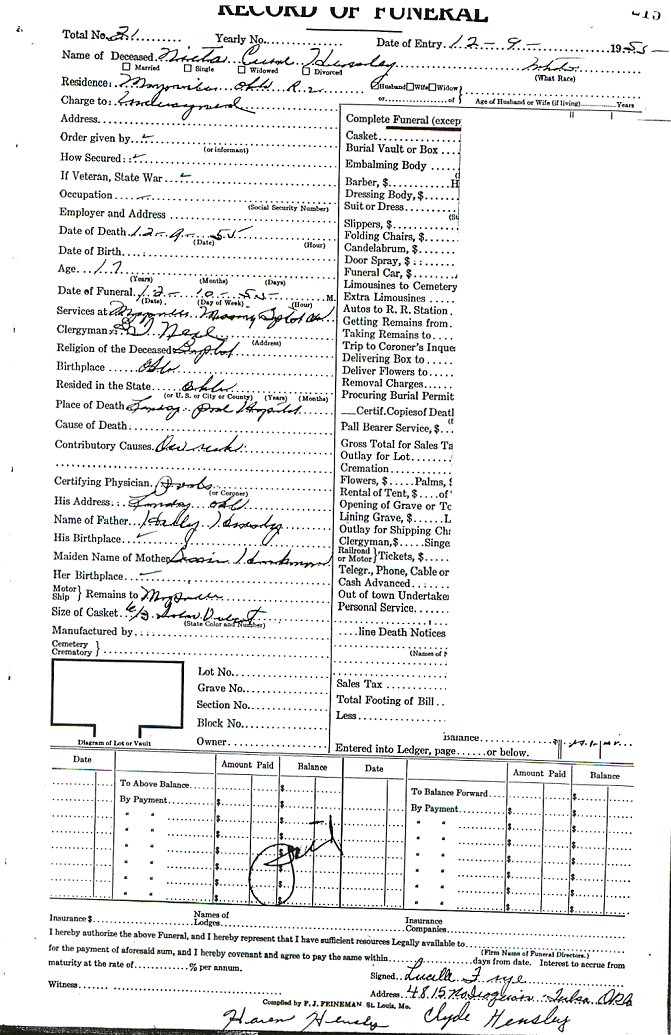 RECORD OF FUNERAL
Total No. 31 Yearly No. Date of Entry 12-9- 1955
Name of Deceased Hensley
Married Single Widowed Divorced (What Race)
Residence: Okla R.2 Husband Wife Widow
or of Age of Husband or Wife (if living) Years
Charge to: Undersigned
Complete Funeral (excep
Address
Casket
Order given by
Burial Vault or Box
(or informant)
Embalming Body
How Secured:
Barber, $ H
If Veteran, State War
Dressing Body, $
Occupation
Suit or Dress
(Social Security Number)
Slippers, $
Employer and Address
Folding Chairs, $
Date of Death 12-9-55
Candelabrum, $
(Date) (Hour)
Door Spray, $
Date of Birth
Funeral Car, $
Age 17
Limousines to Cemetery
(Years) (Months) (Days)
Extra Limousines
Date of Funeral 12-10-55- M.
Autos to R. R. Station
(Date) (Day of Week) (Hour)
Getting Remains from
Services at
Taking Remains to
Clergyman: Neal
Trip to Coroner's Inque
(Address)
Religion of the Deceased Baptist
Delivering Box to
Birthplace Okla
Deliver Flowers to
Resided in the State Okla
Removal Charges
(or U. S. or City or County) (Years) (Months)
Procuring Burial Permit
Place of Death Hospital
Certif. Copies of Deatl
Cause of Death:
Pall Bearer Service, $
Contributory Causes
Gross Total for Sales Ta
Outlay for Lot
Cremation
Certifying Physician
Flowers, $ Palms, $
(or Coroner)
Rental of Tent, $ of
His Address: Okl
Opening of Grave or To
Name of Father
Lining Grave, $ L
His Birthplace
Outlay for Shipping Cha
Clergyman, $ Singe
Maiden Name of Mother
Railroad or Motor } Tickets, $
Her Birthplace
Telegr., Phone, Cable or
Motor Ship } Remains to
Cash Advanced
Out of town Undertake
Size of Casket 6/3
Personal Service
(State Color and Number)
Manufactured by
line Death Notices
Cemetery Crematory }
(Names of N
Lot No.
Grave No.
Sales Tax
Section No.
Total Footing of Bill
Block No.
Less
Balance
Diagram of Lot or Vault Owner Entered into Ledger, page or below.
Date Amount Paid Balance Date Amount Paid Balance
To Above Balance $ To Balance Forward $
By Payment $ By Payment $
" " $ " " $
" " $ " " $
" " $ " " $
" " $ " " $
" " $ " " $
" " $ " " $
Paid
Insurance $ Names of Lodges Insurance Companies
I hereby authorize the above Funeral, and I hereby represent that I have sufficient resources Legally available to
(Firm Name of Funeral Directors.)
for the payment of aforesaid sum, and I hereby covenant and agree to pay the same within days from date. Interest to accrue from
maturity at the rate of % per annum.
Signed Lucille Frye
Witness Address 4815 Tulsa
Compiled by F. J. FEINEMAN St. Louis, Mo.
Karen Hensley Clyde Hensley